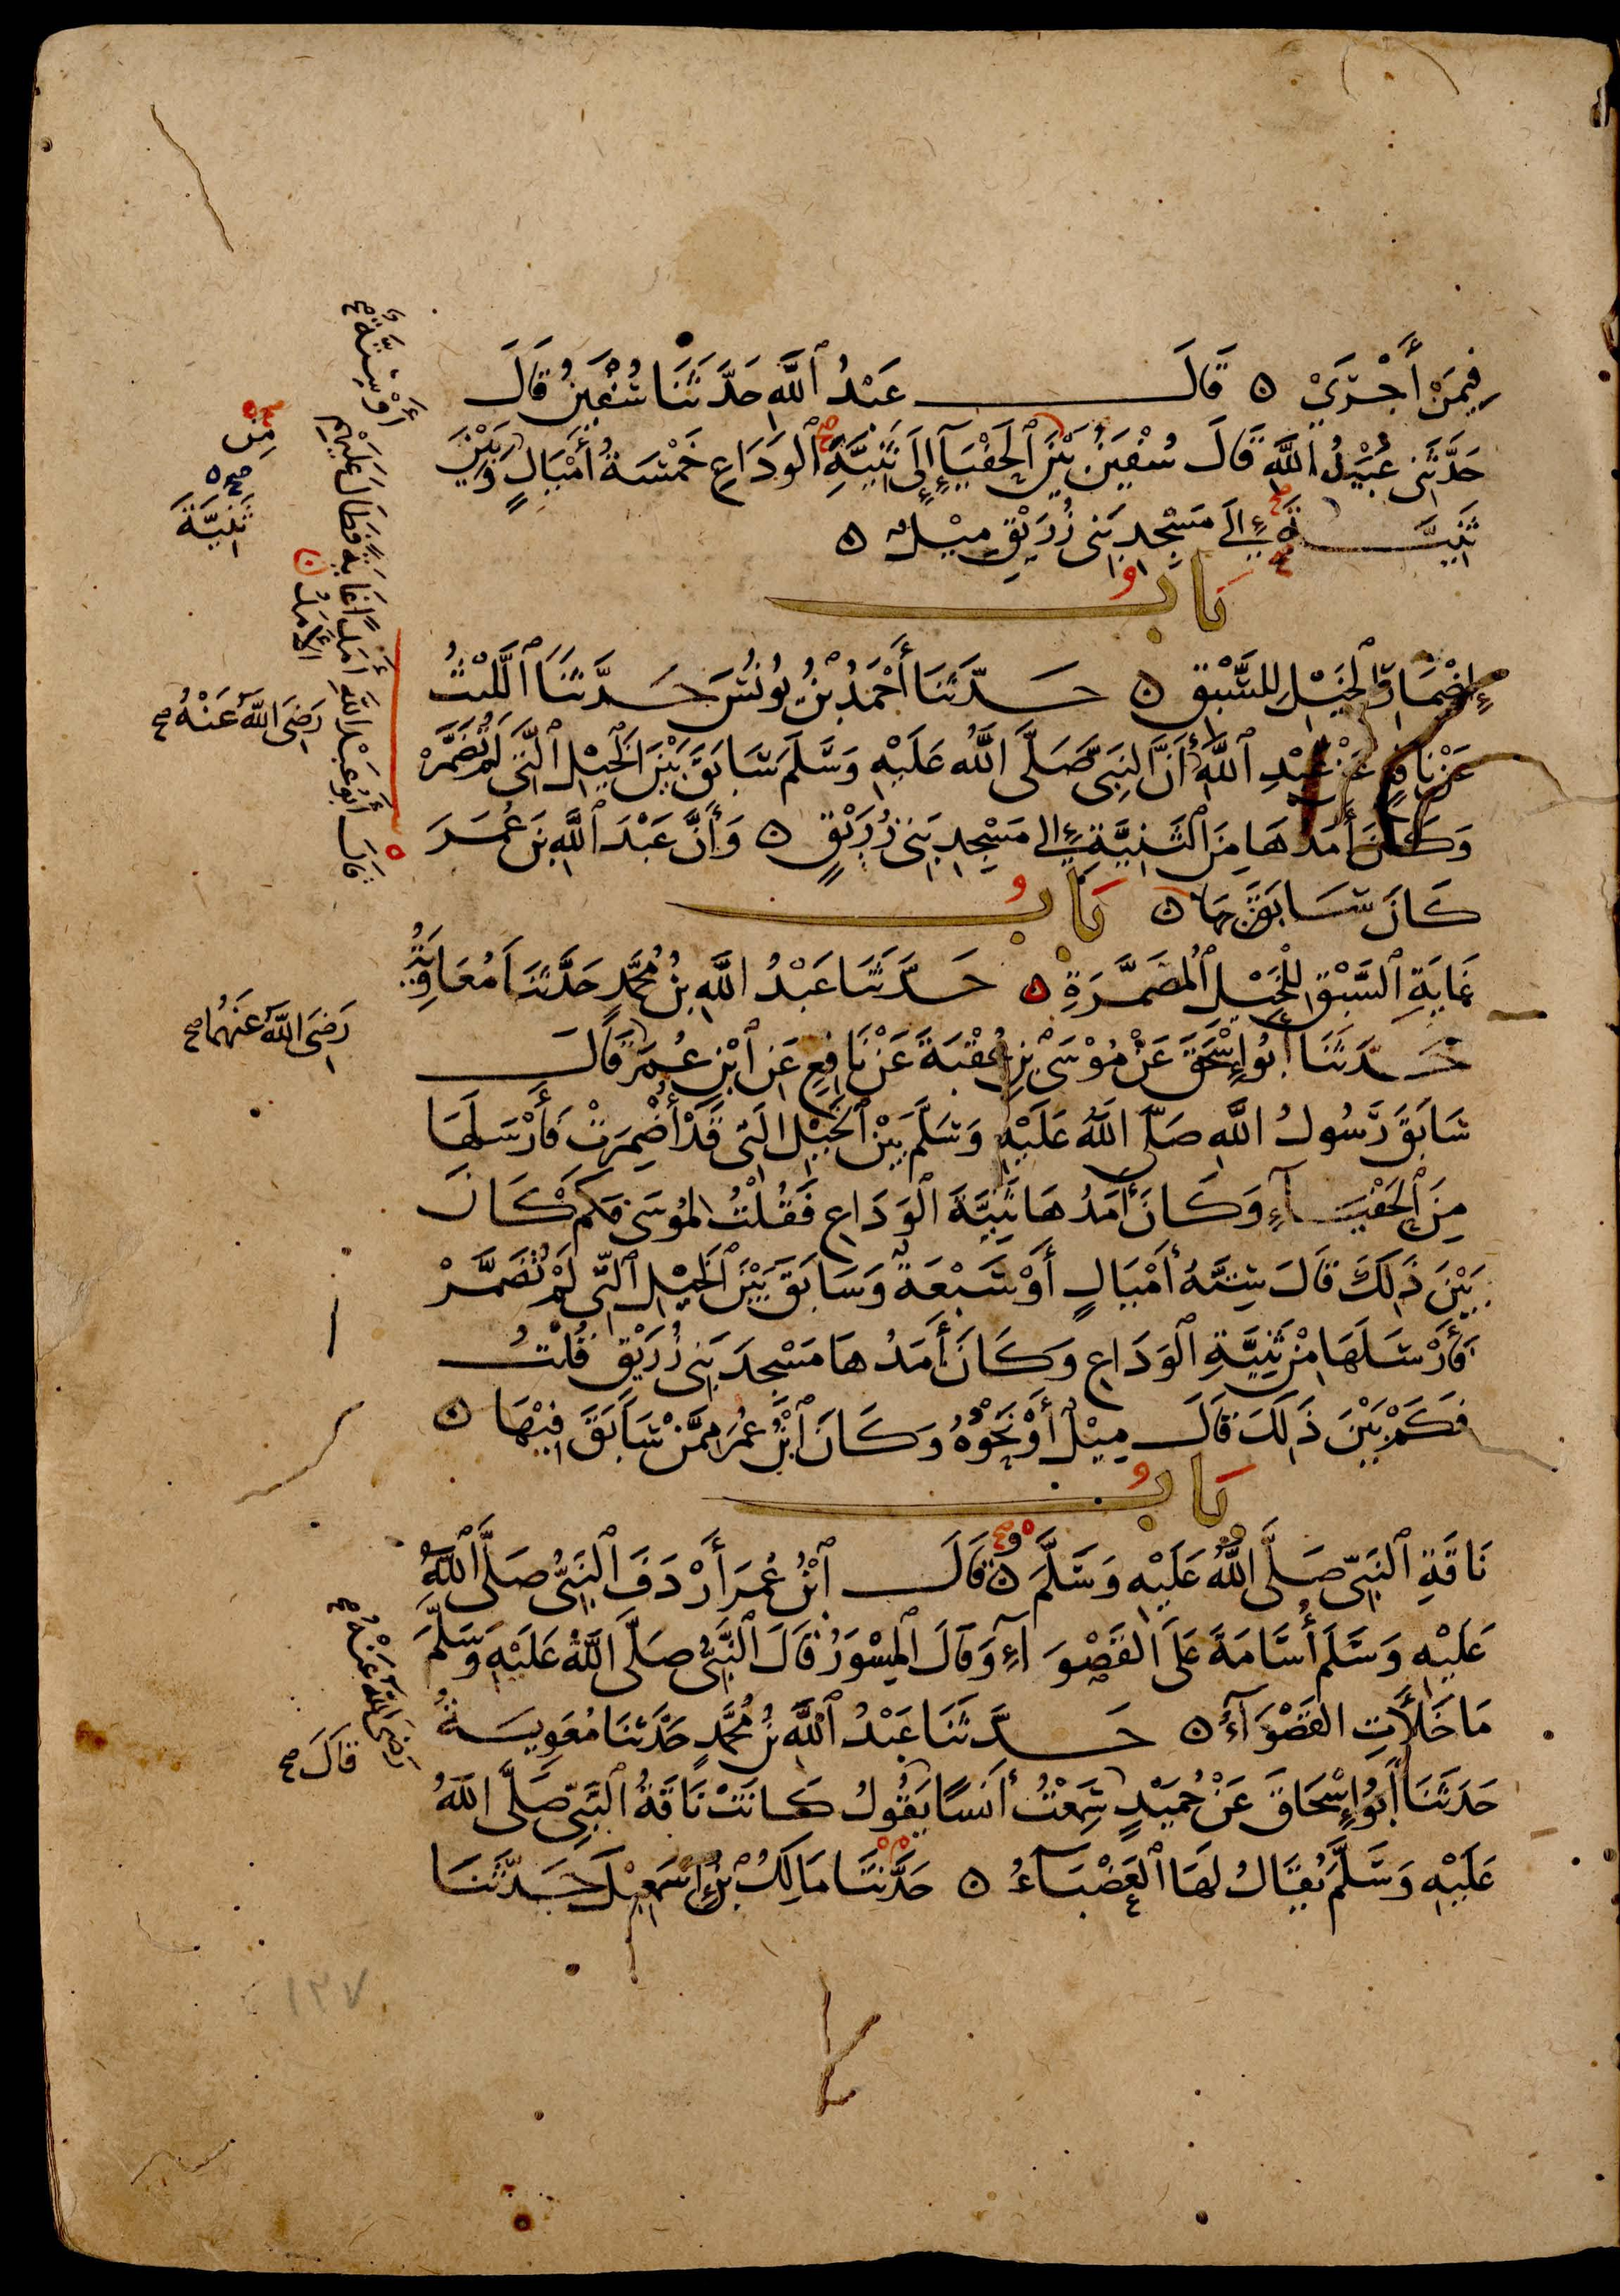 فِيمَنْ أَجْرَى ۝ قَالَ عَبْدُ ٱللَّهِ حَدَّثَنَا سُفْيٰنُ قَالَ
حَدَّثَنِي عُبَيْدُ ٱللَّهِ قَالَ سُفْيٰنُ بَيْنَ ٱلْحَفْيَآءِ إِلَى ثَنِيَّةِ ٱلْوَدَاعِ خَمْسَةُ أَمْيَالٍ وَبَيْنَ
ثَنِيَّةَ إِلَى مَسْجِدِ بَنِي زُرَيْقٍ مِيْلٌ ۝
بَابُ
إِضْمَارِ ٱلْخَيْلِ لِلسَّبْقِ ۝ حَدَّثَنَا أَحْمَدُ بْنُ يُونُسَ حَدَّثَنَا ٱللَّيْثُ
عَنْ نَافِعٍ عَنْ عَبْدِ ٱللَّهِ أَنَّ النَّبِيَّ صَلَّى ٱللَّهُ عَلَيْهِ وَسَلَّمَ سَابَقَ بَيْنَ ٱلْخَيْلِ ٱلَّتِي لَمْ تُضَمَّرْ
وَكَانَ أَمَدُهَا مِنَ ٱلثَّنِيَّةِ إِلَى مَسْجِدِ بَنِي زُرَيْقٍ ۝ وَأَنَّ عَبْدَ ٱللَّهِ بْنَ عُمَرَ
كَانَ سَابَقَ بِهَا ۝ بَابُ
غَايَةِ ٱلسَّبْقِ لِلْخَيْلِ ٱلْمُضَمَّرَةِ ۝ حَدَّثَنَا عَبْدُ اللَّهِ بْنُ مُحَمَّدٍ حَدَّثَنَا مُعَاوِيَةُ
حَدَّثَنَا أَبُو إِسْحٰقَ عَنْ مُوْسَى بْنِ عُقْبَةَ عَنْ نَافِعٍ عَنِ ٱبْنِ عُمَرَ قَالَ
سَابَقَ رَسُولُ اللَّهِ صَلَّى اللَّهُ عَلَيْهِ وَسَلَّمَ بَيْنَ ٱلْخَيْلِ الَّتِي قَدْ أُضْمِرَتْ فَأَرْسَلَهَا
مِنَ ٱلْحَفْيَآءِ وَكَانَ أَمَدُهَا ثَنِيَّةَ الْوَدَاعِ فَقُلْتُ لِمُوسَى فَكَمْ كَانَ
بَيْنَ ذٰلِكَ قَالَ سِتَّةُ أَمْيَالٍ أَوْ سَبْعَةٌ وَسَابَقَ بَيْنَ ٱلْخَيْلِ ٱلَّتِي لَمْ تُضَمَّرْ
فَأَرْسَلَهَا مِنْ ثَنِيَّةِ ٱلْوَدَاعِ وَكَانَ أَمَدُهَا مَسْجِدَ بَنِي زُرَيْقٍ قُلْتُ
فَكَمْ بَيْنَ ذٰلِكَ قَالَ مِيْلٌ أَوْ نَحْوُهُ وَكَانَ ٱبْنُ عُمَرَ مِمَّنْ سَابَقَ فِيْهَا ۝
بَابُ
نَاقَةِ ٱلنَّبِيِّ صَلَّى ٱللَّهُ عَلَيْهِ وَسَلَّمَ ۝ قَالَ ٱبْنُ عُمَرَ أَرْدَفَ ٱلنَّبِيُّ صَلَّى ٱللَّهُ
عَلَيْهِ وَسَلَّمَ أُسَامَةَ عَلَى الْقَصْوَآءِ وَقَالَ ٱلْمِسْوَرُ قَالَ ٱلنَّبِيُّ صَلَّى اللَّهُ عَلَيْهِ وَسَلَّمَ
مَا خَلَأَتِ الْقَصْوَآءُ ۝ حَدَّثَنَا عَبْدُ ٱللَّهِ بْنُ مُحَمَّدٍ حَدَّثَنَا مُعٰوِيَةُ
حَدَّثَنَا أَبُو إِسْحَاقَ عَنْ حُمَيْدٍ سَمِعْتُ أَنَسًا يَقُولُ كَانَتْ نَاقَةُ النَّبِيِّ صَلَّى اللَّهُ
عَلَيْهِ وَسَلَّمَ يُقَالُ لَهَا ٱلْعَضْبَآءُ ۝ حَدَّثَنَا مَالِكُ بْنُ إِسْمٰعِيْلَ حَدَّثَنَا
أَوْ سِتَّةٌ صح
مِن
صح
ثَنِيَّةَ
قَالَ أَبُو عَبْدِ اللَّهِ أَمَدًا غَايَةً فَطَالَ عَلَيْهِمُ
الْأَمَدُ
رَضِيَ اللَّهُ عَنْهُ صح
رَضِيَ اللَّهُ عَنْهُمَا صح
رَضِيَ اللَّهُ عَنْهُ صح
قَالَ صح
١٣٧